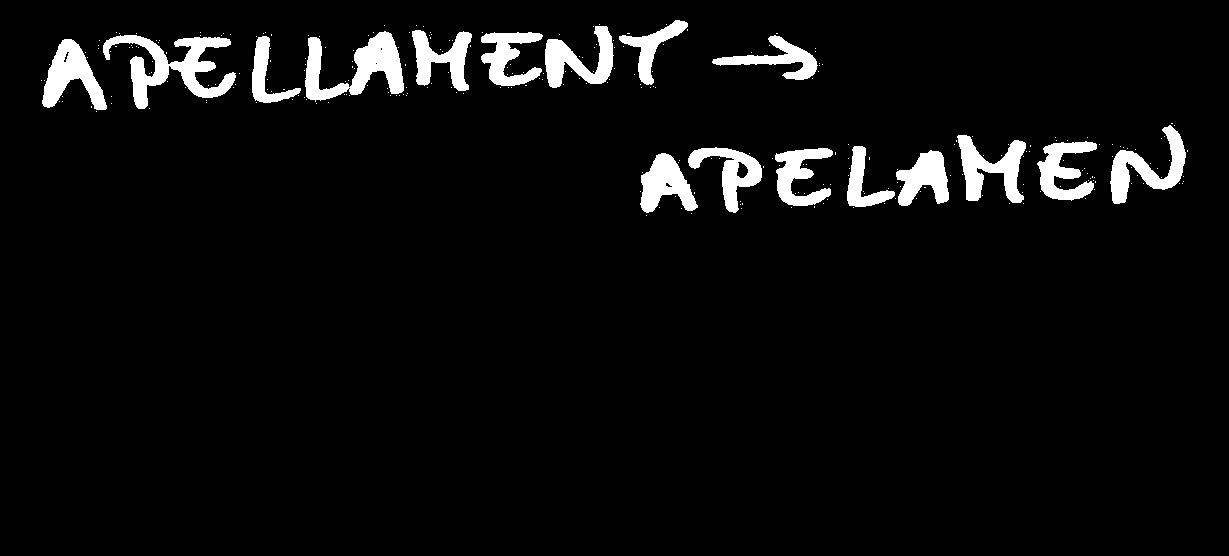 APELLAMENT →
APELAMEN